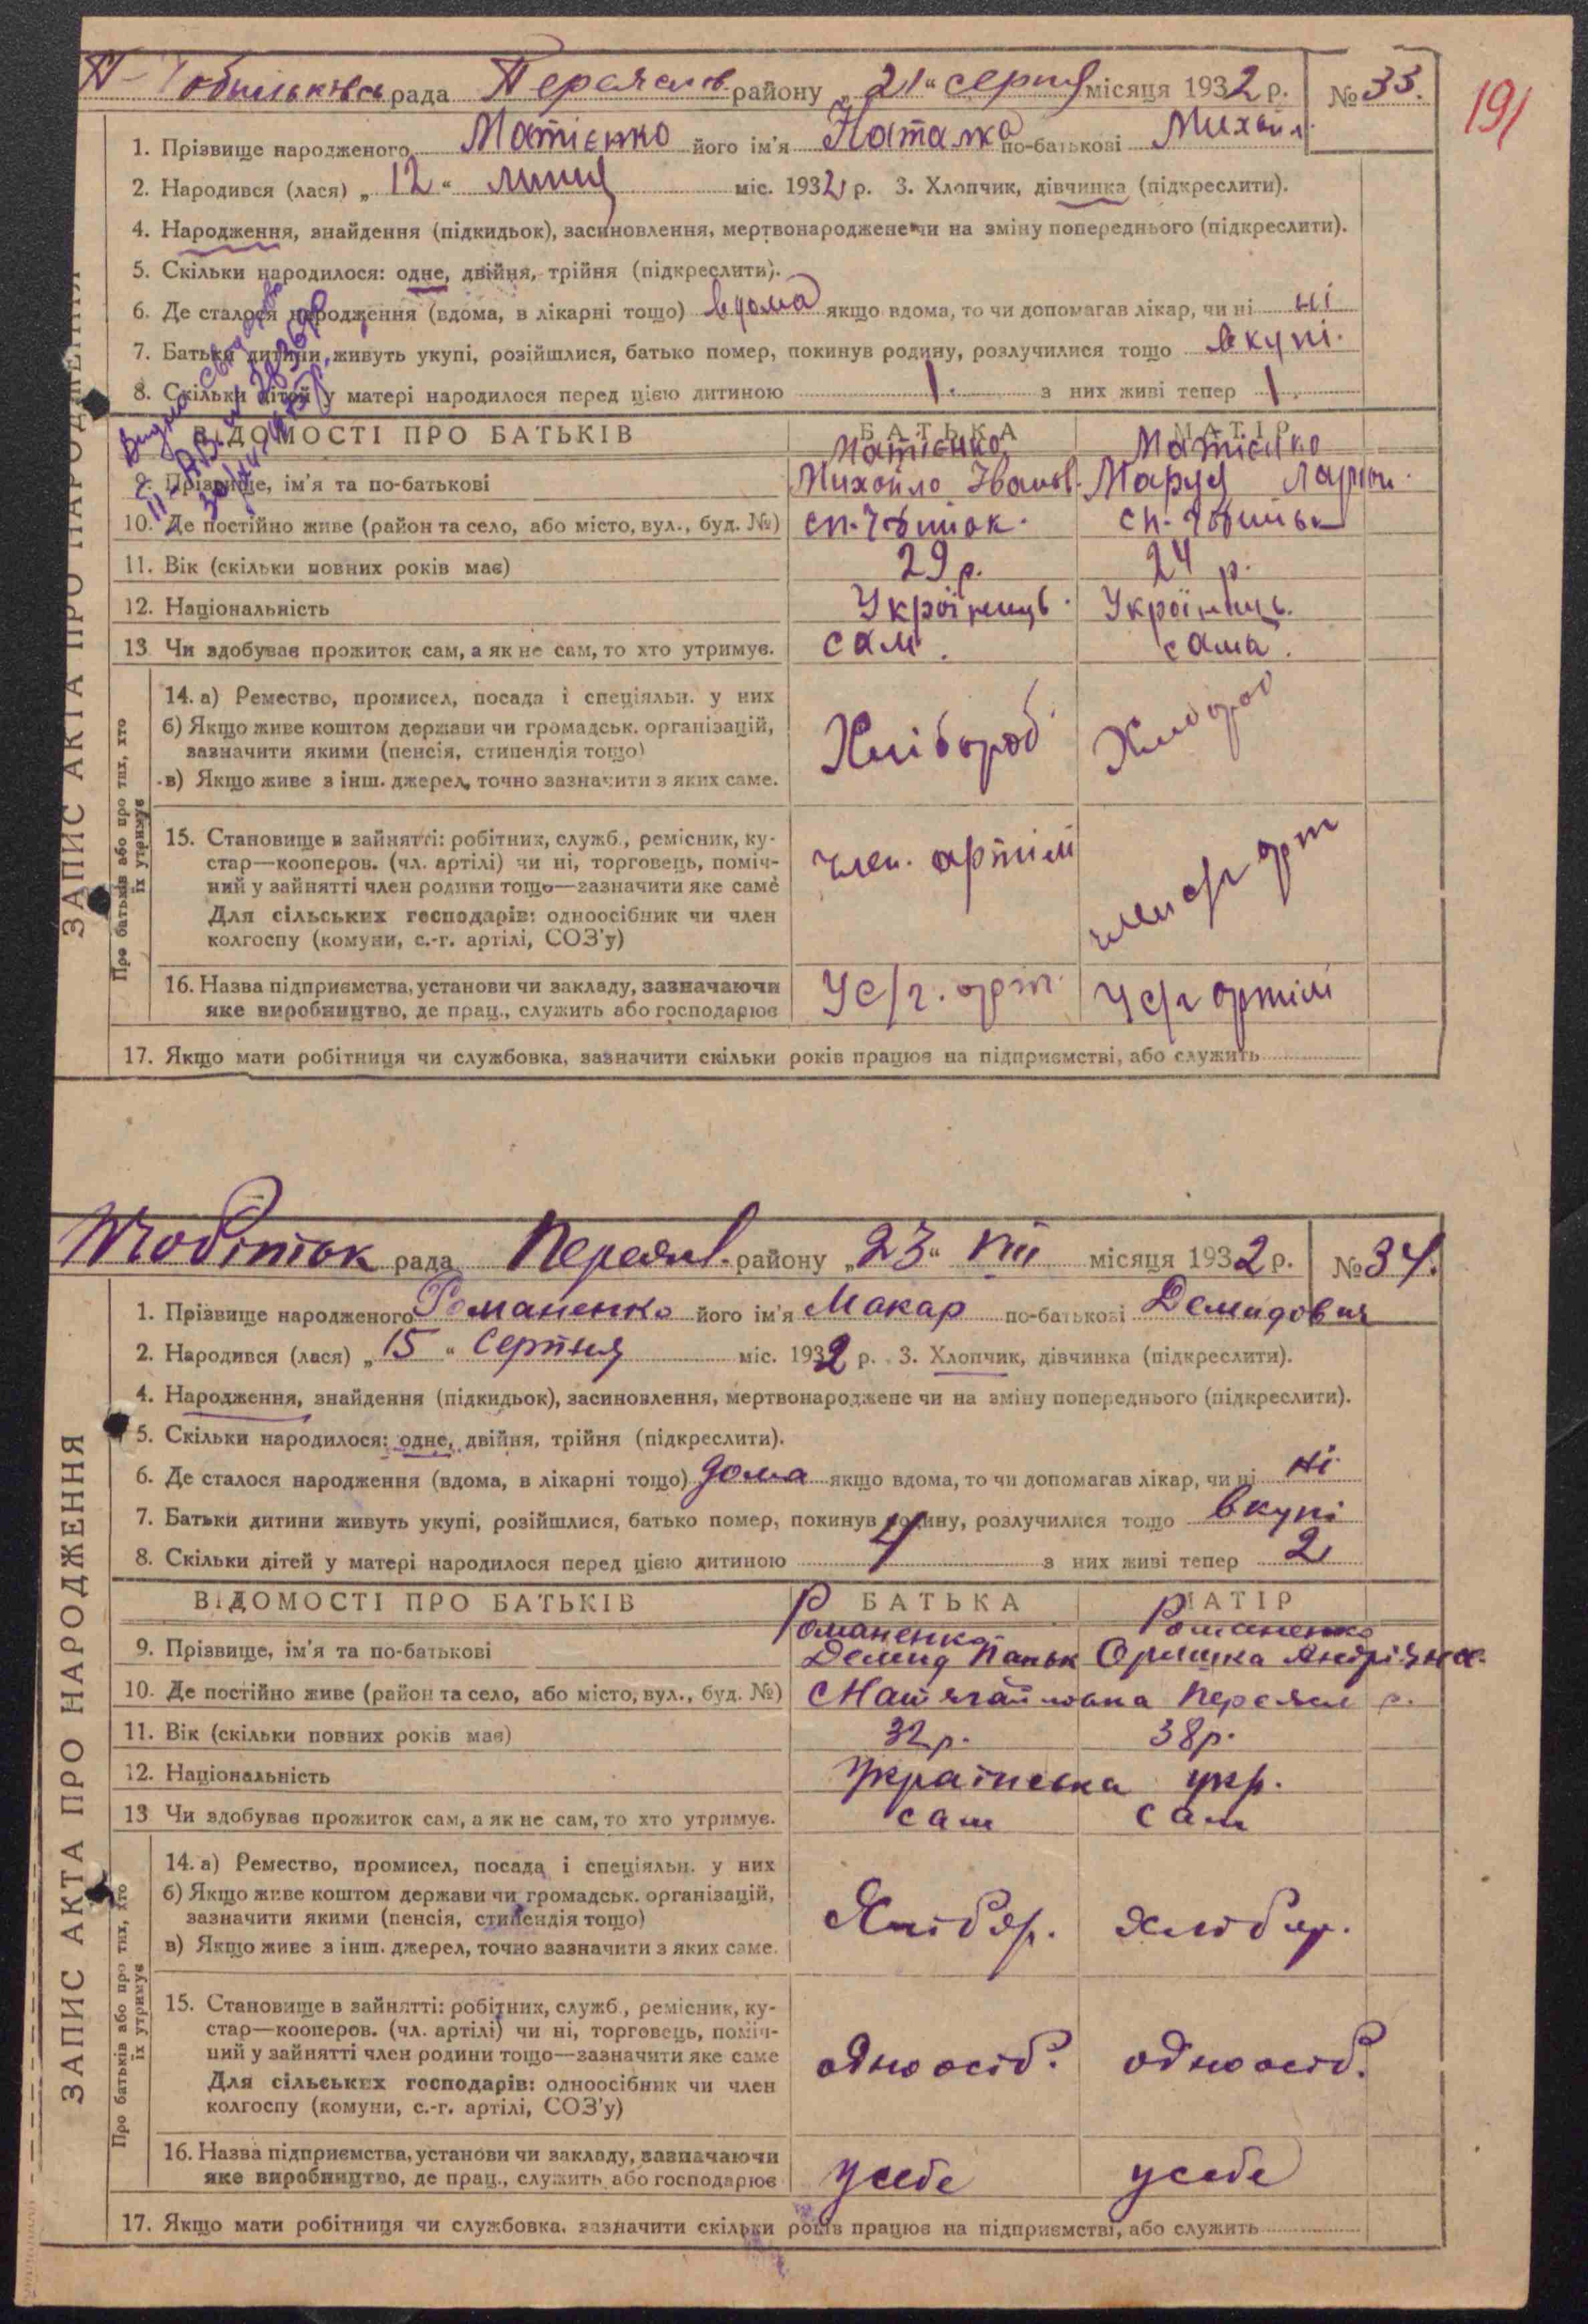 рада Переяслів. району „21“ серпня місяця 1932 р. № 33.
191
1. Прізвище народженого Матієнко його ім'я Наталка по-батькові Михайл.
2. Народився (лася) „12“ липня міс. 1932 р. 3. Хлопчик, дівчинка (підкреслити).
4. Народження, знайдення (підкидьок), засиновлення, мертвонароджене чи на зміну попереднього (підкреслити).
5. Скільки народилося: одне, двійня, трійня (підкреслити).
6. Де сталося народження (вдома, в лікарні тощо) вдома якщо вдома, то чи допомагав лікар, чи ні ні
7. Батьки дитини живуть укупі, розійшлися, батько помер, покинув родину, розлучилися тощо вкупі.
8. Скільки дітей у матері народилося перед цією дитиною 1. з них живі тепер 1.
ВІДОМОСТІ ПРО БАТЬКІВ БАТЬКА МАТІР
Матієнко Матієнко
9. Прізвище, ім'я та по-батькові Михайло Іванов. Маруся Ларіон.
10. Де постійно живе (район та село, або місто, вул., буд. №)
11. Вік (скільки повних років має) 29 р. 24 р.
12. Національність Українець. Українець.
13 Чи здобуває прожиток сам, а як не сам, то хто утримує. сам. сама.
Про батьків або про тих, хто їх утримує
14. а) Ремество, промисел, посада і спеціяльн. у них
б) Якщо живе коштом держави чи громадськ. організацій,
зазначити якими (пенсія, стипендія тощо) Хлібороб Хлібороб
в) Якщо живе з інш. джерел, точно зазначити з яких саме.
15. Становище в зайнятті: робітник, служб., ремісник, ку-
стар—кооперов. (чл. артілі) чи ні, торговець, поміч- член. артілі член с/г арт
ний у зайнятті член родини тощо—зазначити яке саме
Для сільських господарів: одноосібник чи член
колгоспу (комуни, с.-г. артілі, СОЗ'у)
16. Назва підприємства, установи чи закладу, зазначаючи У с/г. арт. У с/г артілі
яке виробництво, де прац., служить або господарює
17. Якщо мати робітниця чи службовка, зазначити скільки років працює на підприємстві, або служить
ЗАПИС АКТА ПРО НАРОДЖЕННЯ
рада Переяслів. району „23“ VIII місяця 1932 р. № 34.
1. Прізвище народженого Романенко його ім'я Макар по-батькові Демидович
2. Народився (лася) „15“ Серпня міс. 1932 р. 3. Хлопчик, дівчинка (підкреслити).
4. Народження, знайдення (підкидьок), засиновлення, мертвонароджене чи на зміну попереднього (підкреслити).
5. Скільки народилося: одне, двійня, трійня (підкреслити).
6. Де сталося народження (вдома, в лікарні тощо) дома якщо вдома, то чи допомагав лікар, чи ні ні
7. Батьки дитини живуть укупі, розійшлися, батько помер, покинув родину, розлучилися тощо вкупі
8. Скільки дітей у матері народилося перед цією дитиною 4 з них живі тепер 2
ВІДОМОСТІ ПРО БАТЬКІВ БАТЬКА МАТІР
Романенко Романенко
9. Прізвище, ім'я та по-батькові Демид Паньк Оришка Андріівна.
10. Де постійно живе (район та село, або місто, вул., буд. №) Переясл р.
11. Вік (скільки повних років має) 32 р. 38 р.
12. Національність Українська укр.
13 Чи здобуває прожиток сам, а як не сам, то хто утримує. сам сам
Про батьків або про тих, хто їх утримує
14. а) Ремество, промисел, посада і спеціяльн. у них
б) Якщо живе коштом держави чи громадськ. організацій,
зазначити якими (пенсія, стипендія тощо) Хлібор. хлібор.
в) Якщо живе з інш. джерел, точно зазначити з яких саме.
15. Становище в зайнятті: робітник, служб., ремісник, ку-
стар—кооперов. (чл. артілі) чи ні, торговець, поміч-
ний у зайнятті член родини тощо—зазначити яке саме одноосіб. одноосіб.
Для сільських господарів: одноосібник чи член
колгоспу (комуни, с.-г. артілі, СОЗ'у)
16. Назва підприємства, установи чи закладу, зазначаючи
яке виробництво, де прац., служить або господарює усебе усебе
17. Якщо мати робітниця чи службовка, зазначити скільки років працює на підприємстві, або служить
ЗАПИС АКТА ПРО НАРОДЖЕННЯ